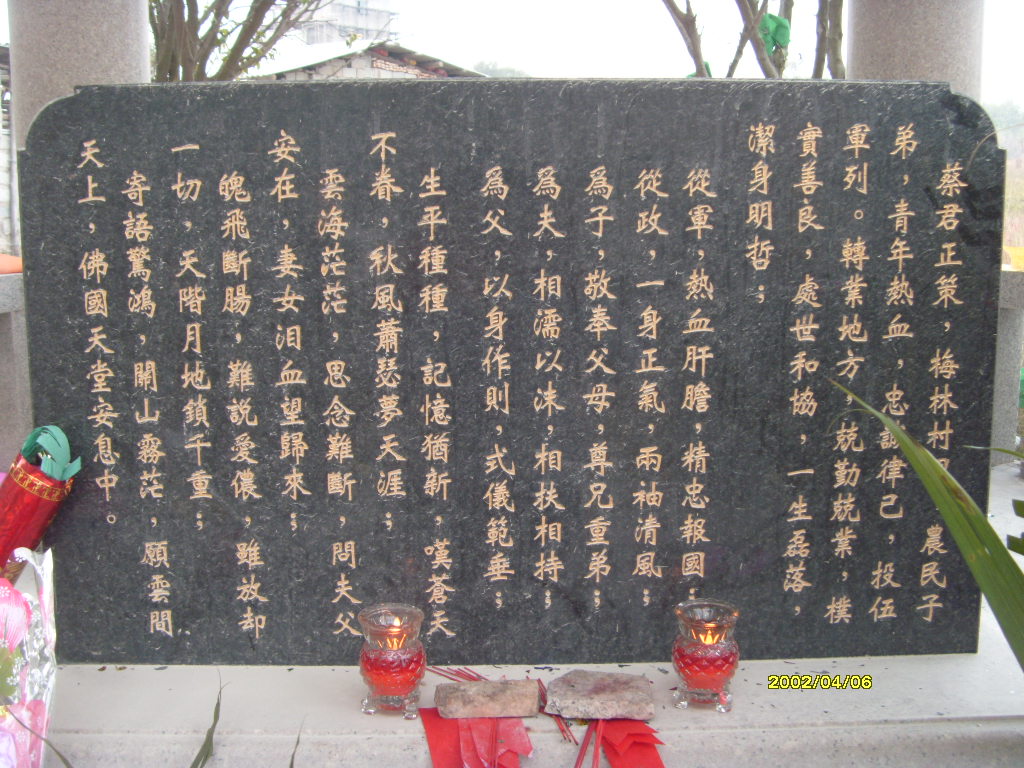 蔡君正策，梅林村 農民子
弟，青年熱血，忠誠律己，投伍
軍列。轉業地方，兢勤兢業，樸
實善良，處世和協，一生磊落，
潔身明哲；
從軍，熱血肝膽，精忠報國；
從政，一身正氣，兩袖清風；
為子，敬奉父母，尊兄重弟；
為夫，相濡以沫，相扶相持；
為父，以身作則，式儀範垂；
生平種種，記憶猶新，嘆蒼天
不眷，秋風蕭瑟夢天涯；
雲海茫茫，思念難斷，問夫父
安在，妻女泪血望歸來；
魄飛斷腸，難説愛儂，雖放却
一切，天階月地鎖千重；
寄語驚鴻，關山霧茫，願雲間
天上，佛國天堂安息中。
2002/04/06